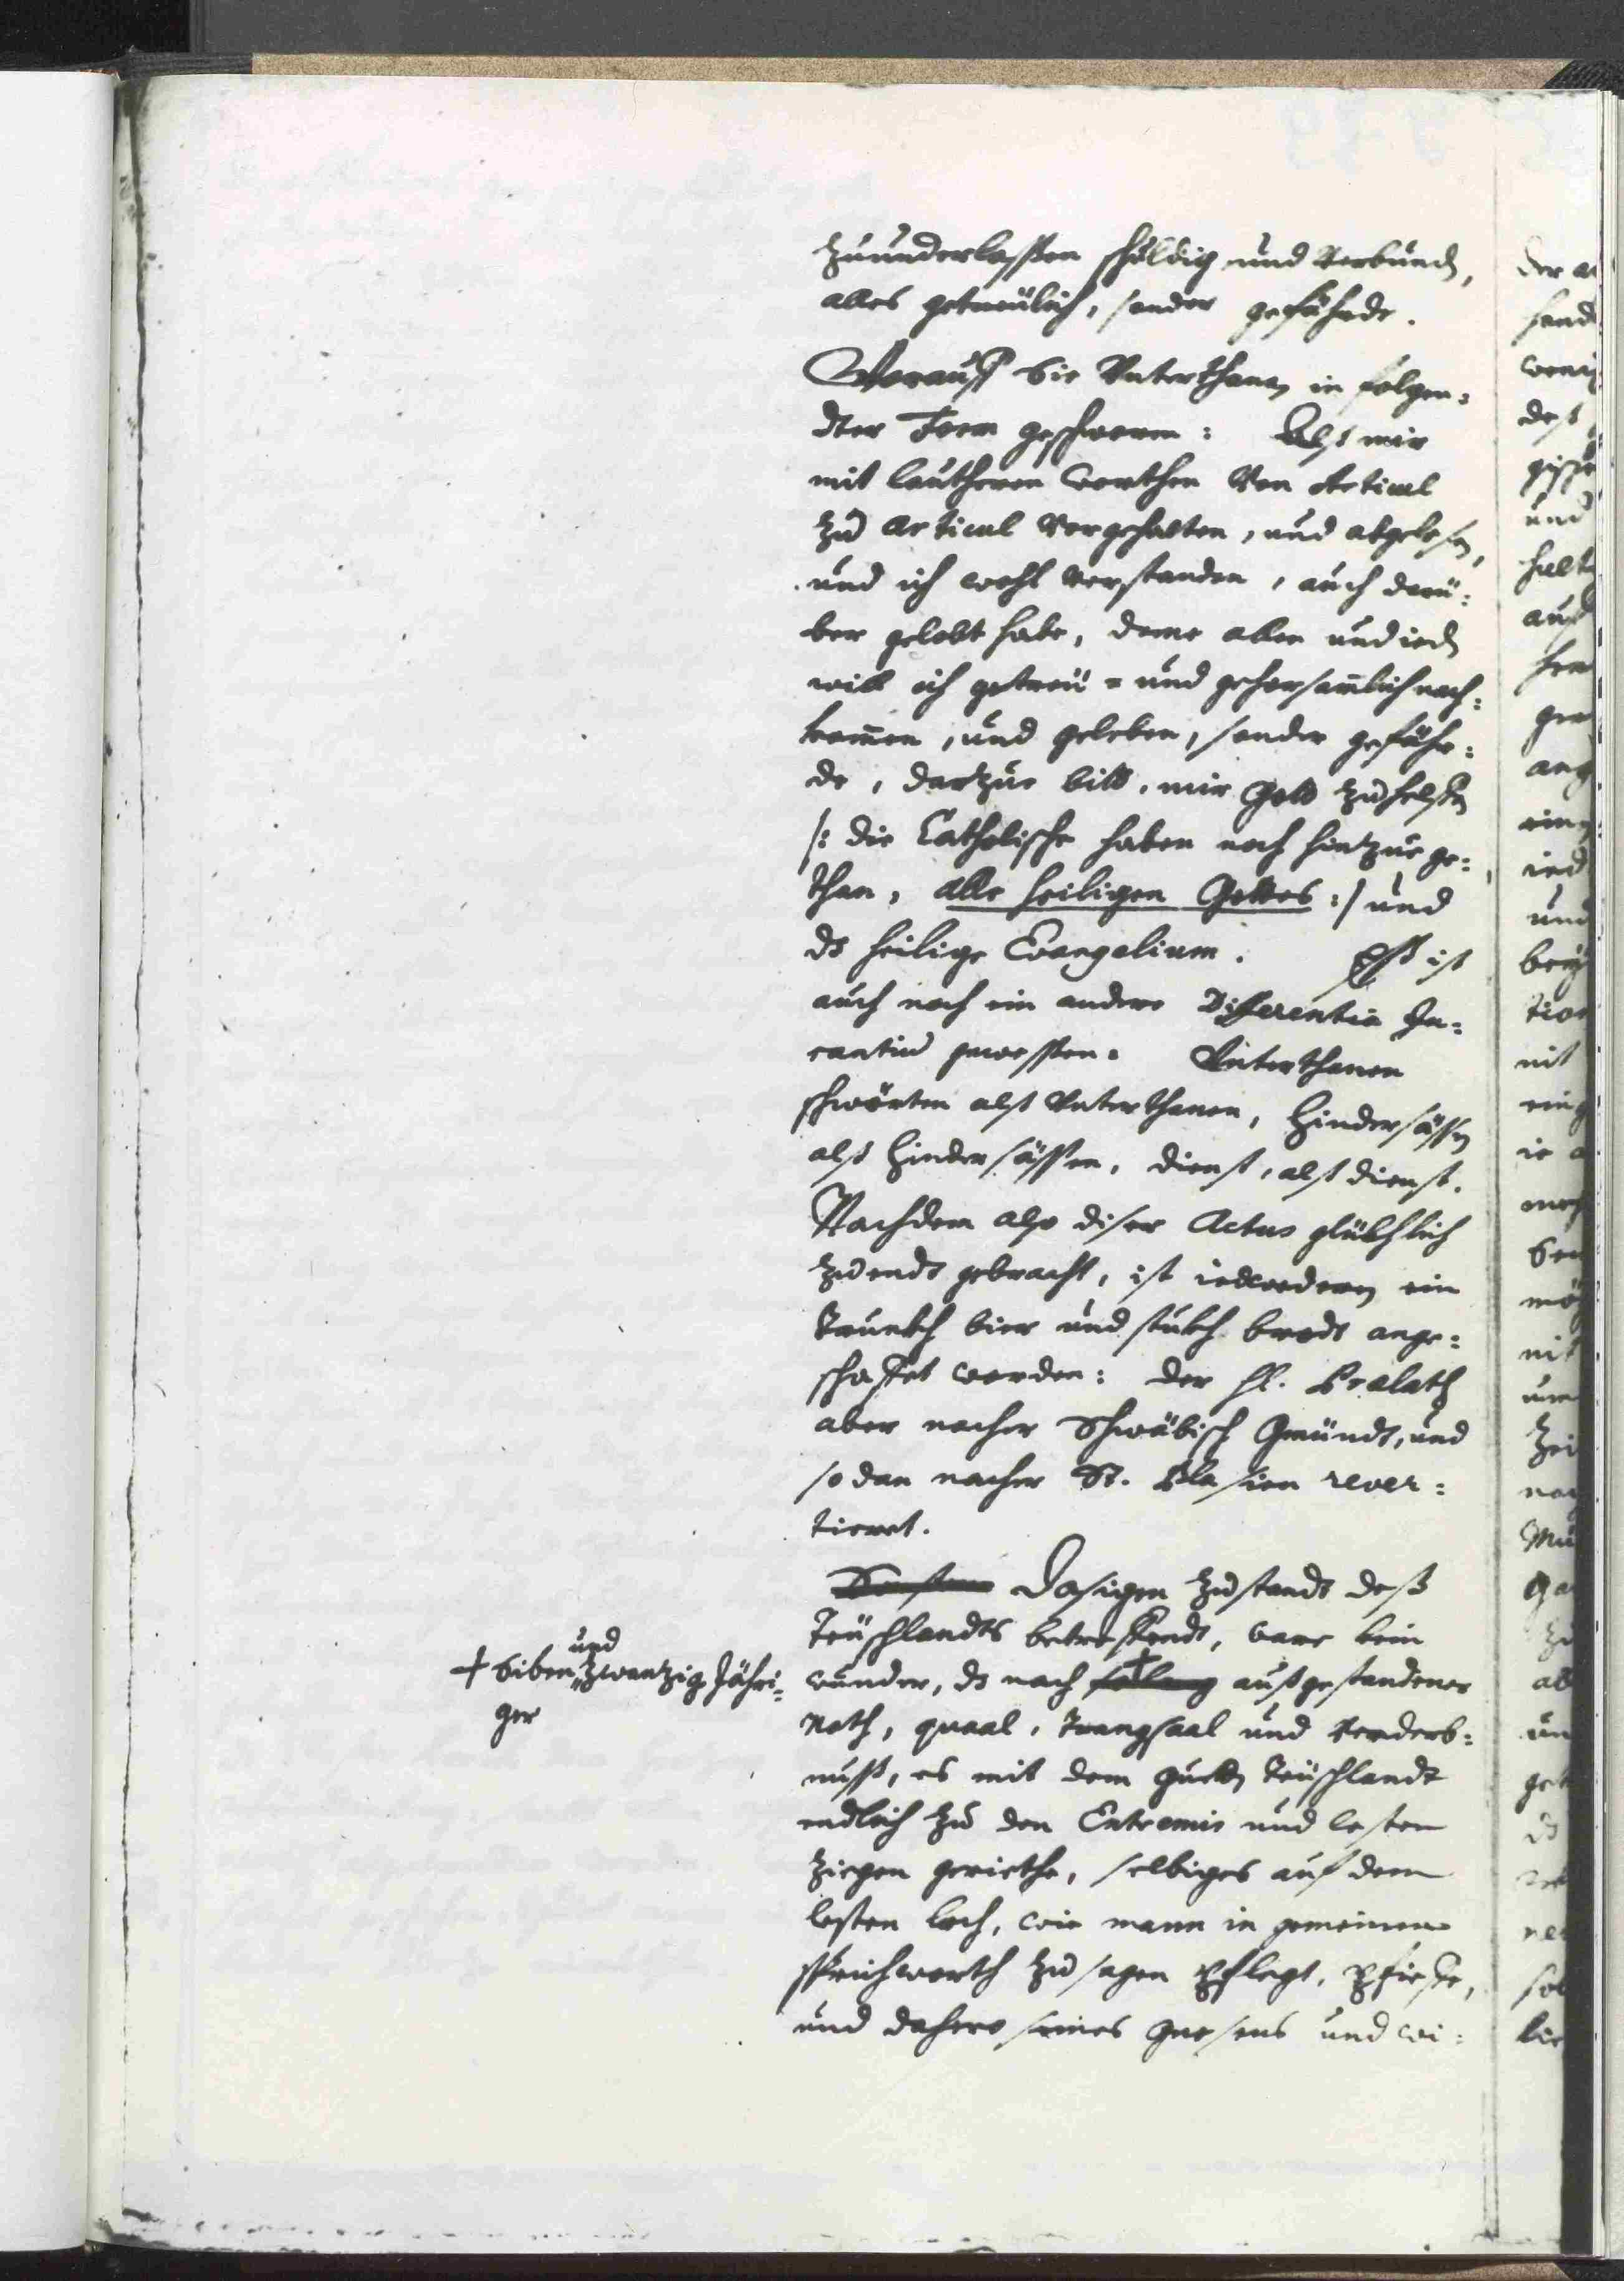 zuunderlassen schuldig und verbund,
alles getreülich, sonder gefährde.
Worauff die Unterthanen in folgen=
dter Form geschworen: Alß mir
mit lautheren worthen von Articul
zu Articul vorgehalten, und abgelesen,
und ich wohl verstanden, auch darü=
ber gelobt habe, deme allen und ieden
will ich getreü= und gehorsamlich nach=
kommen, und geleben, sonder gefähr=
de, darzue bitt, mir Gott zu helffen
/: die Catholische haben noch hinzue ge=
than, alle heiligen Gottes :/ und
ds heilige Evangelium. Esß ist
auch noch ein andere Differentia
gewessen. Unterthanen
schwörten alß Unterthanen, Hindersässen
alß Hindersässen, dienst, alß dienst.
Nachdem also diser Actus glükhlich
zu ends gebracht, ist iedwederen ein
Trunkh bier und stukh brodt ange=
schaffet worden: der H. Prælath
aber nacher Schwäbisch Gmündt, und
so dan nacher St. Blasien rever=
tieret.
Dasigen zustandt deß
Teüschlandts betreffendt, ware kein
wunder, ds nach + außgestandener
Noth, quaal, Trangsaal und verderb=
nuß, es mit dem gueten Teüschlandt
endlich zu den Extremis und lesten
Ziegen geriethe, selbiges auf dem
lesten loch, wie mann in gemeinem
sprichworth zu sagen pflegt, pfieffe,
und dahero seines gnesens und wi=
+ siben und zwanzig Jähri=
ger